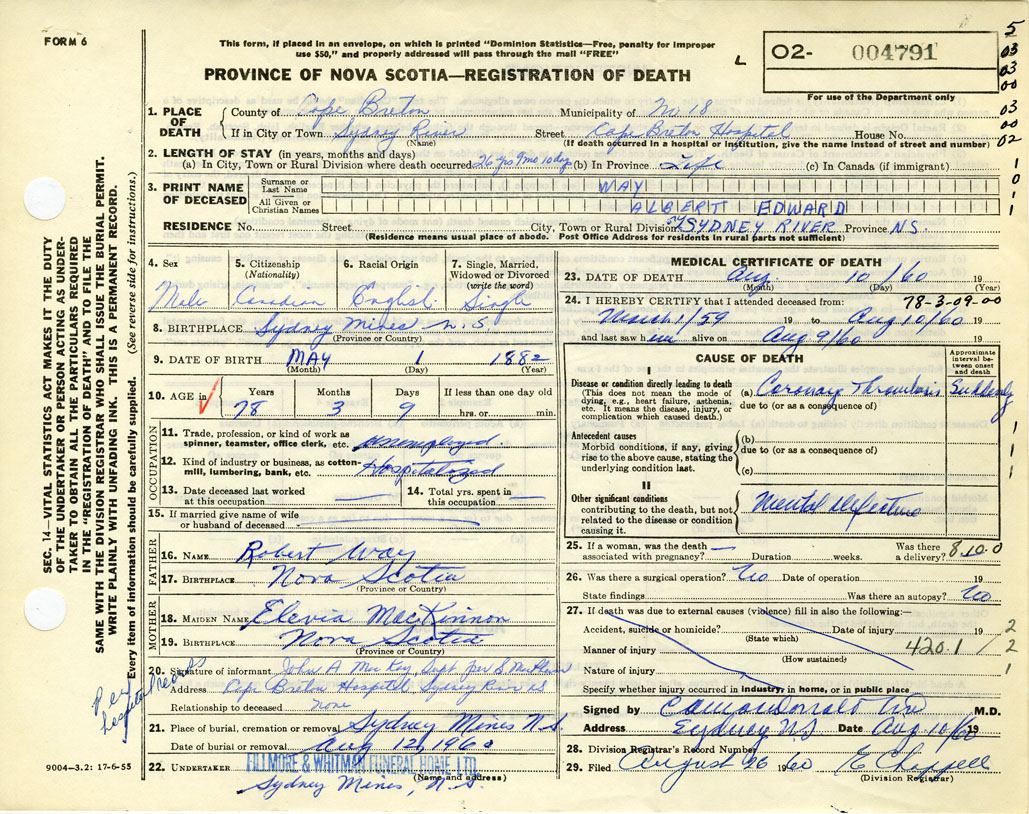 FORM 6
This form, if placed in an envelope, on which is printed "Dominion Statistics—Free, penalty for improper
use $50," and properly addressed will pass through the mail "FREE"
PROVINCE OF NOVA SCOTIA—REGISTRATION OF DEATH
L
02- 004791
For use of the Department only
5
03
03
00
03
00
02
1
0
1
1
SEC. 14—VITAL STATISTICS ACT MAKES IT THE DUTY
OF THE UNDERTAKER OR PERSON ACTING AS UNDER-
TAKER TO OBTAIN ALL THE PARTICULARS REQUIRED
IN THE "REGISTRATION OF DEATH" AND TO FILE THE
SAME WITH THE DIVISION REGISTRAR WHO SHALL ISSUE THE BURIAL PERMIT.
WRITE PLAINLY WITH UNFADING INK. THIS IS A PERMANENT RECORD.
Every item of information should be carefully supplied. (See reverse side for instructions.)
1. PLACE OF DEATH
County of Cape Breton Municipality of No 18
If in City or Town Sydney River Street Cape Breton Hospital House No.
(Name) (If death occurred in a hospital or institution, give the name instead of street and number)
2. LENGTH OF STAY (in years, months and days)
(a) In City, Town or Rural Division where death occurred 26 yrs 9 mo 10 days (b) In Province Life (c) In Canada (if immigrant)
3. PRINT NAME OF DECEASED
Surname or Last Name WAY
All Given or Christian Names ALBERT EDWARD
RESIDENCE No. Street City, Town or Rural Division SYDNEY RIVER Province N.S.
(Residence means usual place of abode. Post Office Address for residents in rural parts not sufficient)
4. Sex
Male
5. Citizenship
(Nationality)
Canadian
6. Racial Origin
English
7. Single, Married,
Widowed or Divorced
(write the word)
Single
8. BIRTHPLACE Sydney Mines N.S.
(Province or Country)
9. DATE OF BIRTH MAY 1 1882
(Month) (Day) (Year)
10. AGE in Years Months Days If less than one day
78 3 9 hrs. or min.
OCCUPATION
11. Trade, profession, or kind of work as
spinner, teamster, office clerk, etc. unemployed
12. Kind of industry or business, as cotton-
mill, lumbering, bank, etc. Hospitalized
13. Date deceased last worked
at this occupation
14. Total yrs. spent in
this occupation
15. If married give name of wife
or husband of deceased
FATHER
16. NAME Robert Way
17. BIRTHPLACE Nova Scotia
(Province or Country)
MOTHER
18. MAIDEN NAME Elevia MacKinnon
19. BIRTHPLACE Nova Scotia
(Province or Country)
20. Signature of informant John A MacKay, Supt per S
Address Cape Breton Hospital, Sydney River NS
Relationship to deceased none
Per
hospital records
21. Place of burial, cremation or removal Sydney Mines N.S.
Date of burial or removal Aug 12, 1960
22. UNDERTAKER FILLMORE & WHITMAN FUNERAL HOME LTD.
(Name and address)
Sydney Mines, N.S.
9004—3.2: 17-6-55
MEDICAL CERTIFICATE OF DEATH
23. DATE OF DEATH Aug 10 /60 19
(Month) (Day) (Year)
24. I HEREBY CERTIFY that I attended deceased from: 78-3-09-00
March 1/59 19 to Aug 10/60 19
and last saw him alive on Aug 9/60 19
CAUSE OF DEATH
Approximate interval between onset and death
I
Disease or condition directly leading to death
(This does not mean the mode of
dying, e.g., heart failure, asthenia,
etc. It means the disease, injury, or
complication which caused death.)
(a) Coronary Thrombosis Suddenly
due to (or as a consequence of)
Antecedent causes
Morbid conditions, if any, giving
rise to the above cause, stating the
underlying condition last.
(b)
due to (or as a consequence of)
(c)
II
Other significant conditions
contributing to the death, but not
related to the disease or condition
causing it.
Mental defective
1
1
1
25. If a woman, was the death
associated with pregnancy? Duration weeks. Was there
a delivery? 8.10.0
26. Was there a surgical operation? No Date of operation 19
State findings Was there an autopsy? No
27. If death was due to external causes (violence) fill in also the following:—
Accident, suicide or homicide? Date of injury 19 2
(State which)
Manner of injury 420.1 / 2
(How sustained)
Nature of injury 1
Specify whether injury occurred in industry, in home, or in public place
Signed by M.D.
Address Sydney NS Date Aug 10/60 19
28. Division Registrar's Record Number
29. Filed August 26 1960 E Chappell
(Division Registrar)